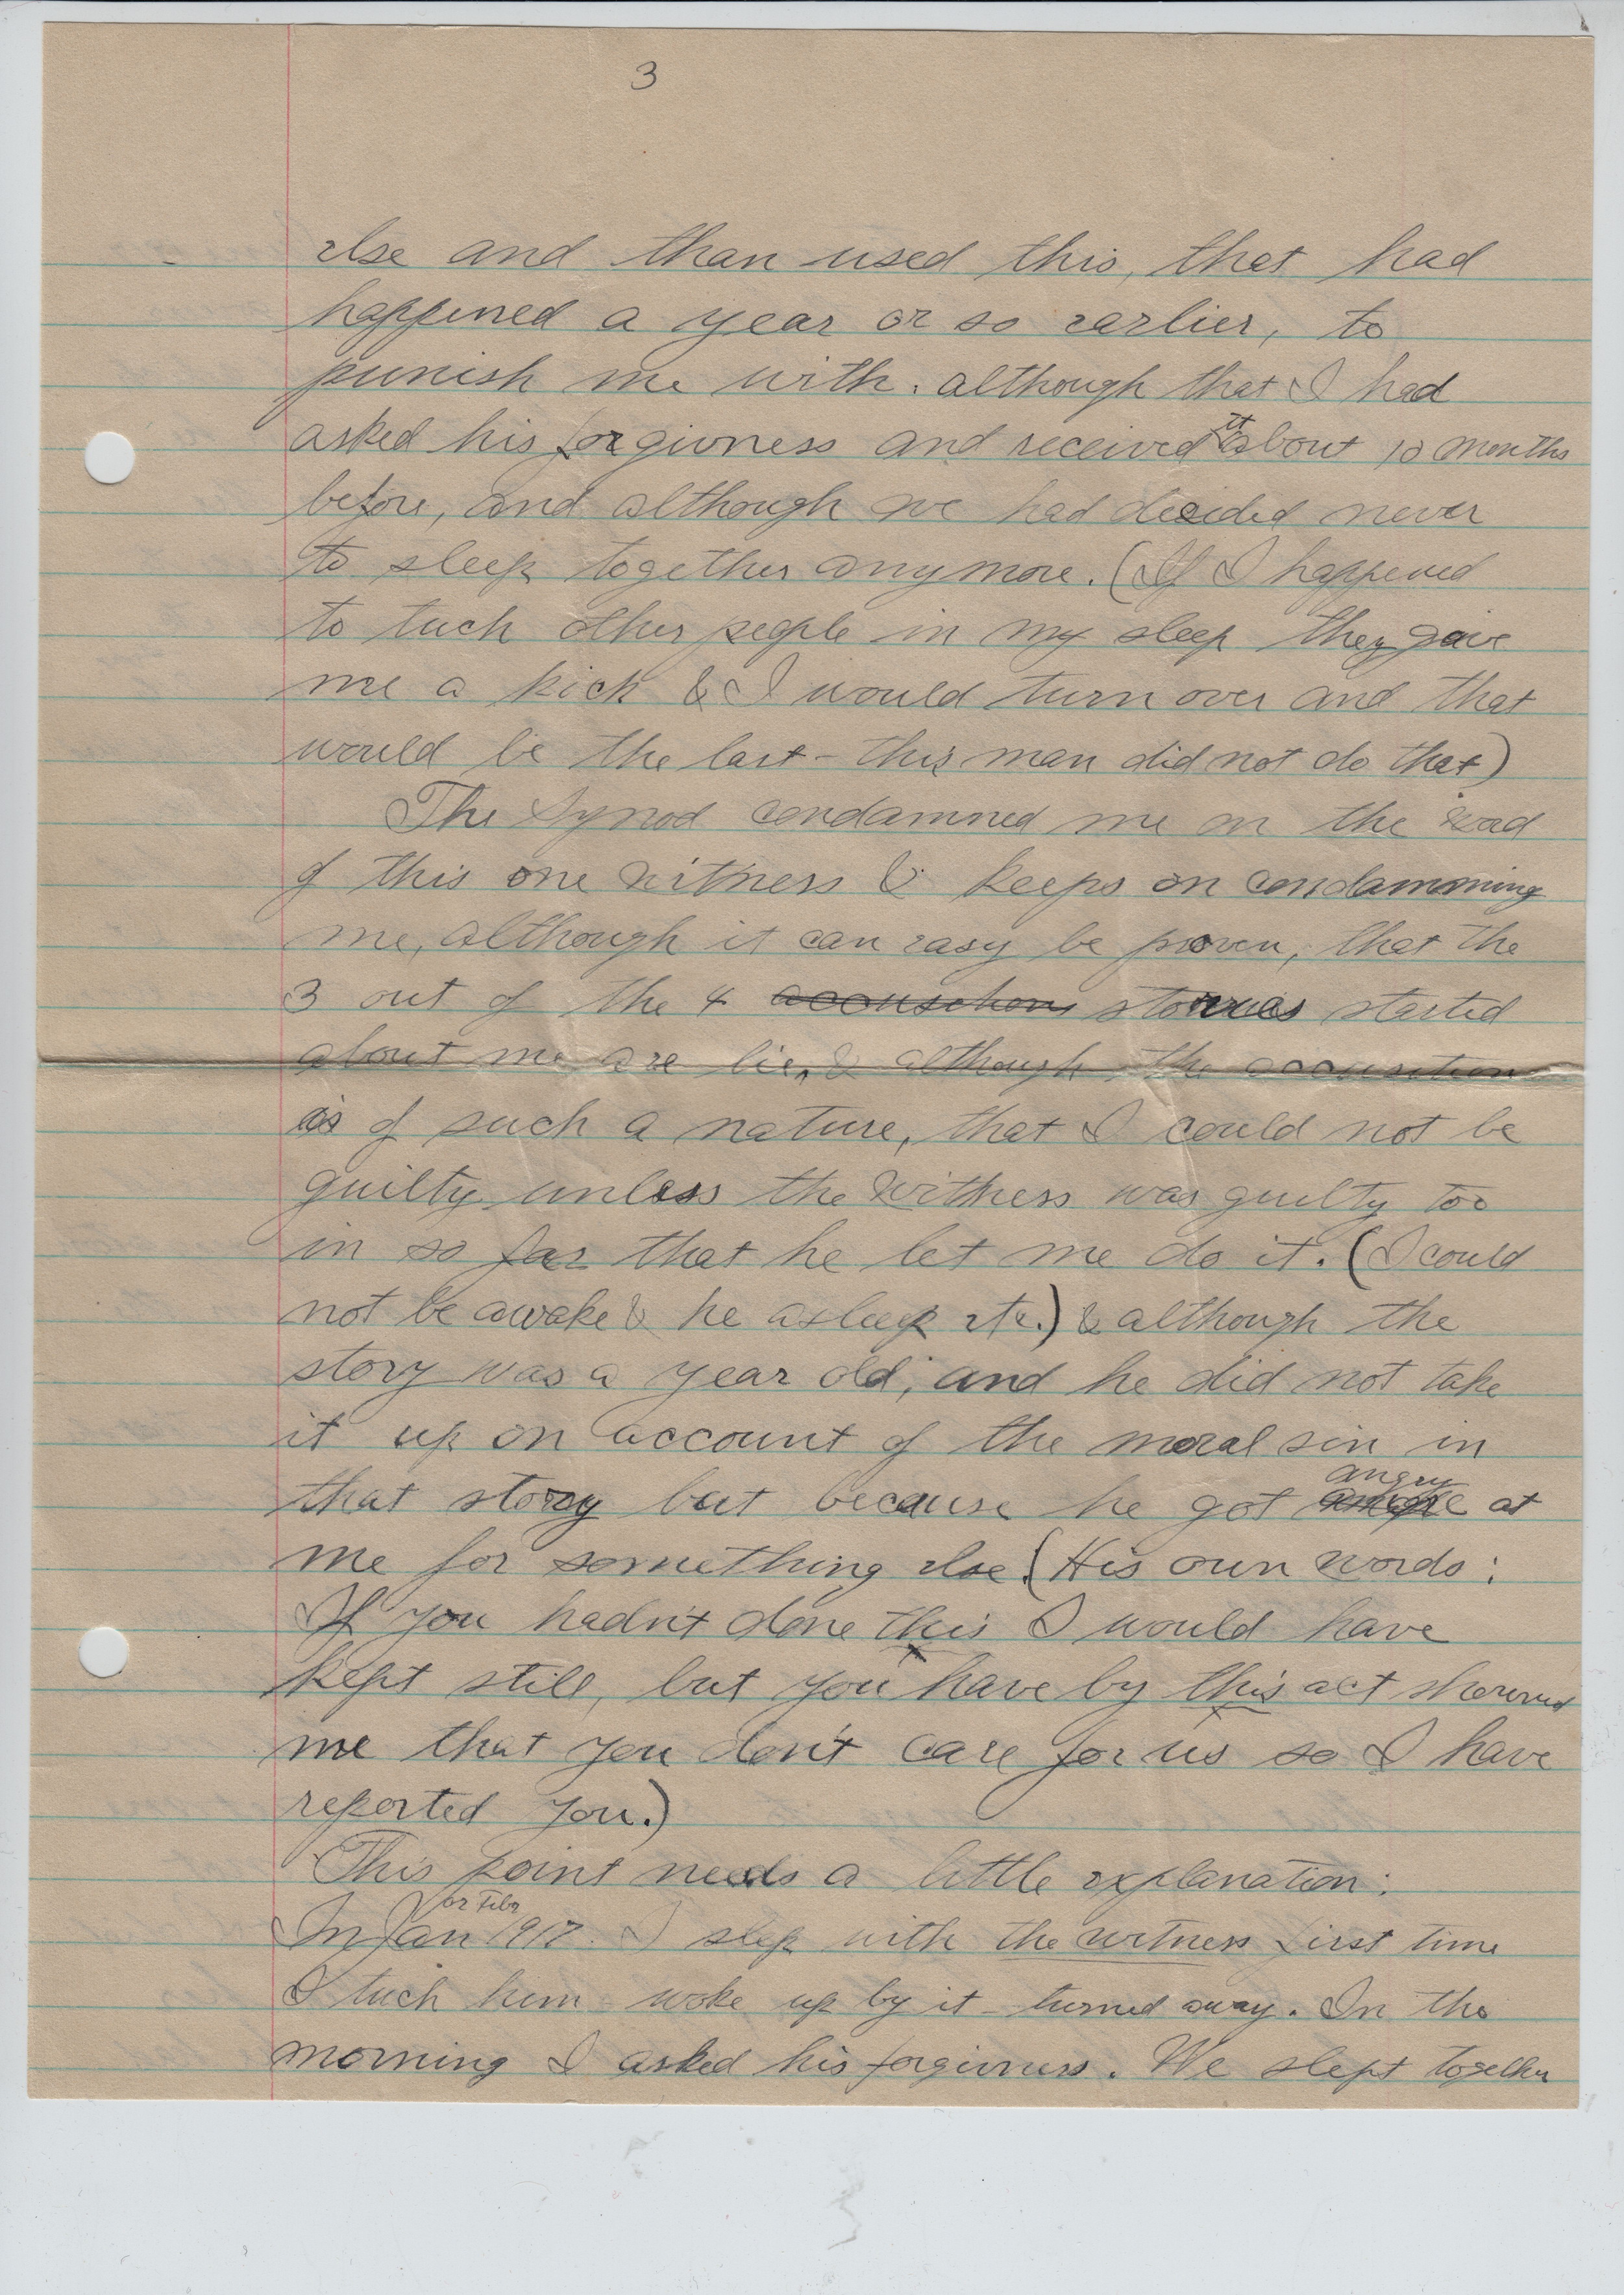 3
else and than used this, that had
happened a year or so earlier, to
punish me with. although that I had
asked his forgivness and received it about 10 months
before, and although we had decided never
to sleep together anymore. (If I happened
to tuch other people in my sleep they gave
me a kick & I would turn over and that
would be the last - this man did not do that)
The Synod condamned me on the word
of this one witness & keeps on condamning
me, although it can easy be proven, that the
3 out of the 4 accusations stories started
about me are lie, & although the accusation
is of such a nature, that I could not be
guilty unless the witness was guilty too
in so far that he let me do it. (I could
not be awake & he asleep etc.) & although the
story was a year old, and he did not take
it up on account of the moral sin in
that story but because he got angry at
me for something else. (His own words:
If you hadn't done this I would have
kept still, but you have by this act showed
me that you don't care for us so I have
reported you.)
This point needs a little explanation:
In Jan or Feb 1917. I slep with the witness first time
I tuch him - woke up by it - turned away. In the
morning I asked his forgivness. We slept together